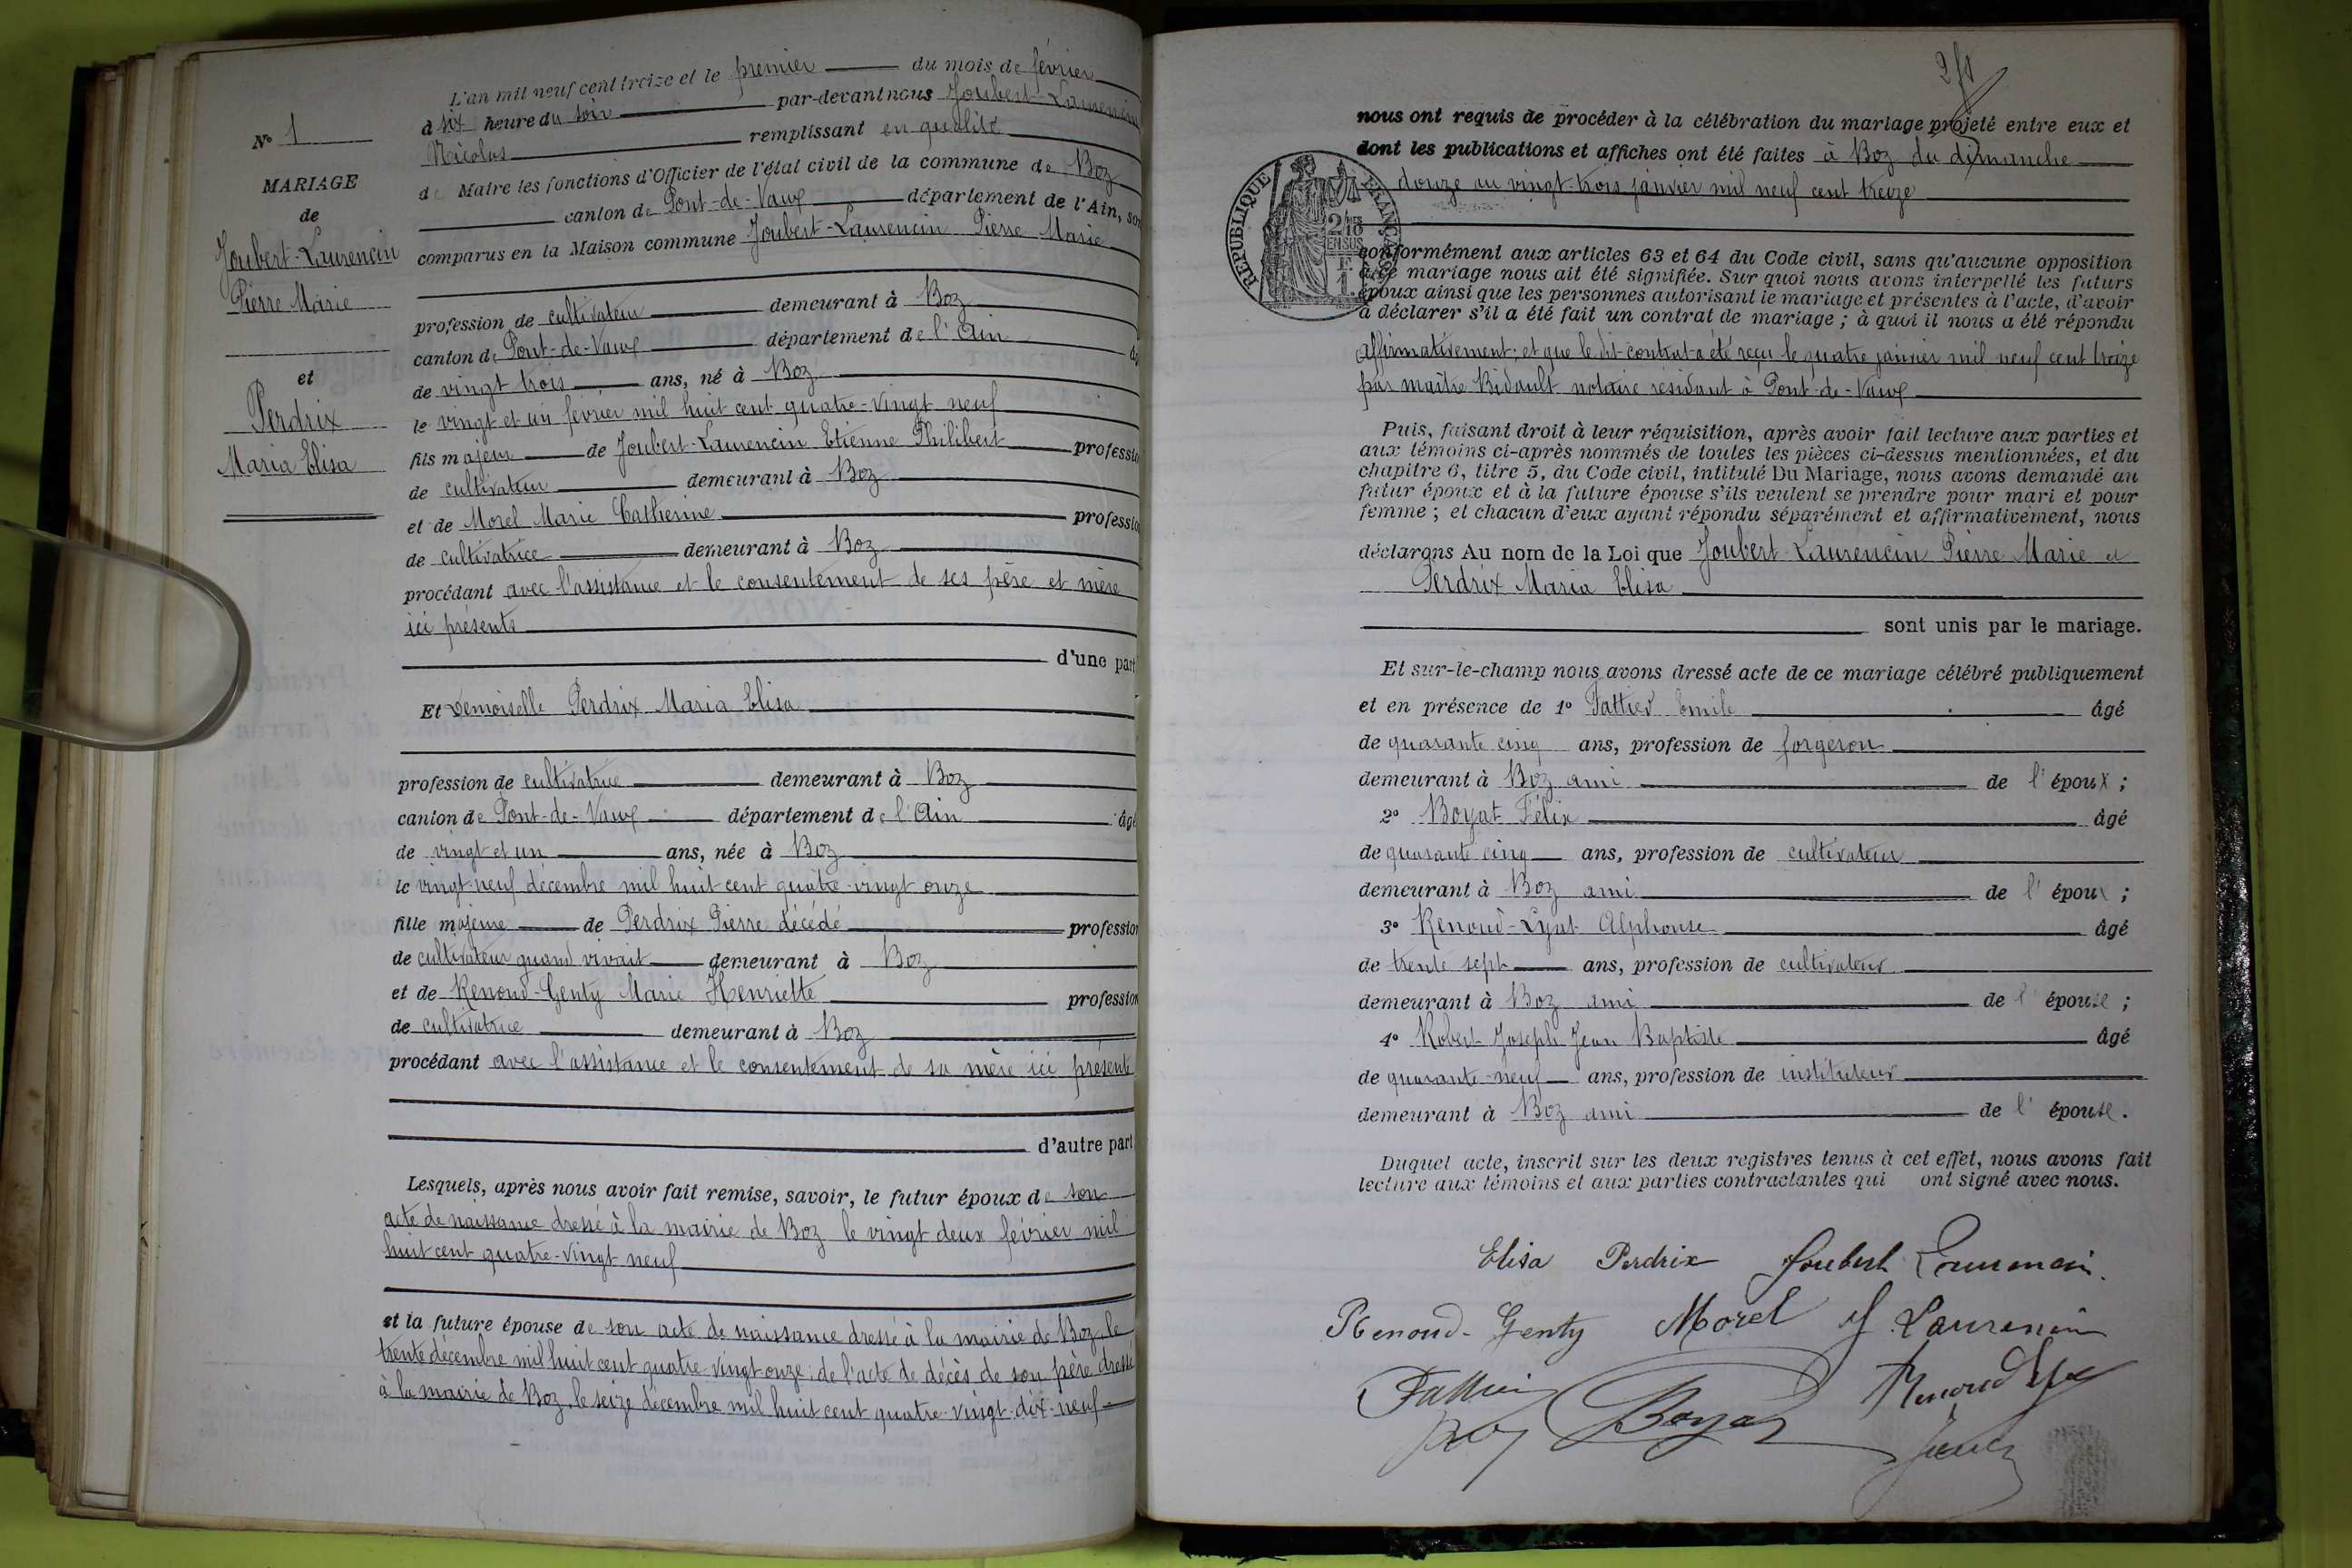 L'an mil neuf cent treize et le premier du mois de février
à six heure du soir par-devant nous Joubert-Laurencin
Nicolas remplissant en qualité
de Maire les fonctions d'Officier de l'état civil de la commune de Boz
canton de Pont-de-Vaux département de l'Ain, son
comparus en la Maison commune Joubert-Laurencin Pierre Marie
profession de cultivateur demeurant à Boz
canton de Pont-de-Vaux département de l'Ain
de vingt trois ans, né à Boz
le vingt et un février mil huit cent quatre-vingt neuf
fils majeur de Joubert-Laurencin Etienne Philibert professio
de cultivateur demeurant à Boz
et de Morel Marie Catherine professio
de cultivatrice demeurant à Boz
procédant avec l'assistance et le consentement de ses père et mère
ici présents
d'une part
Et Demoiselle Perdrix Maria Elisa
profession de cultivatrice demeurant à Boz
canton de Pont-de-Vaux département de l'Ain âgé
de vingt et un ans, née à Boz
le vingt-neuf décembre mil huit cent quatre-vingt onze
fille majeure de Perdrix Pierre décédé profession
de cultivateur quand vivait demeurant à Boz
et de Renoud-Genty Marie Henriette profession
de cultivatrice demeurant à Boz
procédant avec l'assistance et le consentement de sa mère ici présente
d'autre part
Lesquels, après nous avoir fait remise, savoir, le futur époux de son
acte de naissance dressé à la mairie de Boz le vingt deux février mil
huit cent quatre-vingt neuf
et la future épouse de son acte de naissance dressé à la mairie de Boz, le
trente décembre mil huit cent quatre-vingt onze; de l'acte de décès de son père dressé
à la mairie de Boz, le seize décembre mil huit cent quatre-vingt-dix-neuf
N° 1
MARIAGE
de
Joubert-Laurencin
Pierre Marie
et
Perdrix
Maria Elisa
nous ont requis de procéder à la célébration du mariage projeté entre eux et
dont les publications et affiches ont été faites à Boz du dimanche
douze au vingt-trois janvier mil neuf cent treize
RÉPUBLIQUE FRANÇAISE
EN SUS
conformément aux articles 63 et 64 du Code civil, sans qu'aucune opposition
à ce mariage nous ait été signifiée. Sur quoi nous avons interpellé les futurs
époux ainsi que les personnes autorisant le mariage et présentes à l'acte, d'avoir
à déclarer s'il a été fait un contrat de mariage ; à quoi il nous a été répondu
affirmativement; et que le dit contrat a été reçu le quatre janvier mil neuf cent treize
par maître Bidault notaire résidant à Pont-de-Vaux
Puis, faisant droit à leur réquisition, après avoir fait lecture aux parties et
aux témoins ci-après nommés de toutes les pièces ci-dessus mentionnées, et du
chapitre 6, titre 5, du Code civil, intitulé Du Mariage, nous avons demandé au
futur époux et à la future épouse s'ils veulent se prendre pour mari et pour
femme ; et chacun d'eux ayant répondu séparément et affirmativement, nous
déclarons Au nom de la Loi que Joubert Laurencin Pierre Marie et
Perdrix Maria Elisa
sont unis par le mariage.
Et sur-le-champ nous avons dressé acte de ce mariage célébré publiquement
et en présence de 1° Emile âgé
de quarante cinq ans, profession de forgeron
demeurant à Boz ami de l'époux ;
2° Boyat Félix âgé
de quarante cinq ans, profession de cultivateur
demeurant à Boz ami de l'époux ;
3° Renoud-Lyat Alphonse âgé
de trente sept ans, profession de cultivateur
demeurant à Boz ami de l'épouse ;
4° Robert Joseph Jean Baptiste âgé
de quarante-neuf ans, profession de instituteur
demeurant à Boz ami de l'épouse.
Duquel acte, inscrit sur les deux registres tenus à cet effet, nous avons fait
lecture aux témoins et aux parties contractantes qui ont signé avec nous.
Elisa Perdrix Joubert Laurencin
Renoud-Genty Morel J Laurencin
Boyat Renoud Lyat